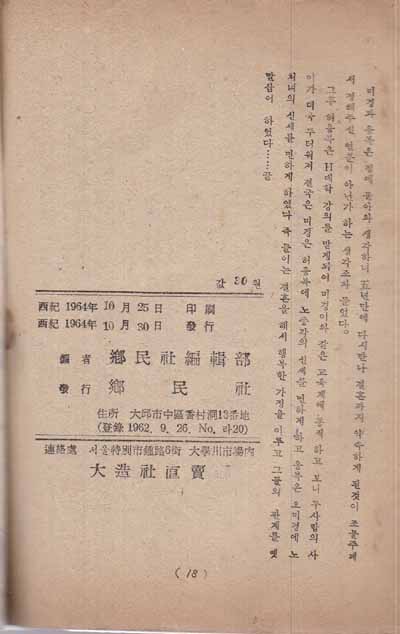 미경과 응복은 집에 돌아와 생각하니 五년만에 다시만나 결혼까지 약속하게 된것이 조물주께
서 정해주신 연분이 아닌가 하는 생각조차 들었다。
그후 허응복은 H대학 강의를 맡게되어 미경이와 같은 교육계에 종사 하고 보니 두사람의 사
이가 더욱 두터워져 결국은 미경은 허응복에 노총각의 신세를 면하게 하고 응복은 오미경에 노
처녀의 신세를 면하게 하였다 즉 둘이는 결혼을 해서 행복한 가정을 이루고 그들의 관계를 옛
말삼어 하였다……끝
값 30원
西紀 1964年 10月 25日 印刷
西紀 1964年 10月 30日 發行
編者 鄕民社編輯部
發行 鄕民社
住所 大邱市中區香村洞13番地
(登錄 1962. 9. 26. No. 라20)
連絡處 서울特別市鍾路6街 大學川市場內
大造社直賣
(18)